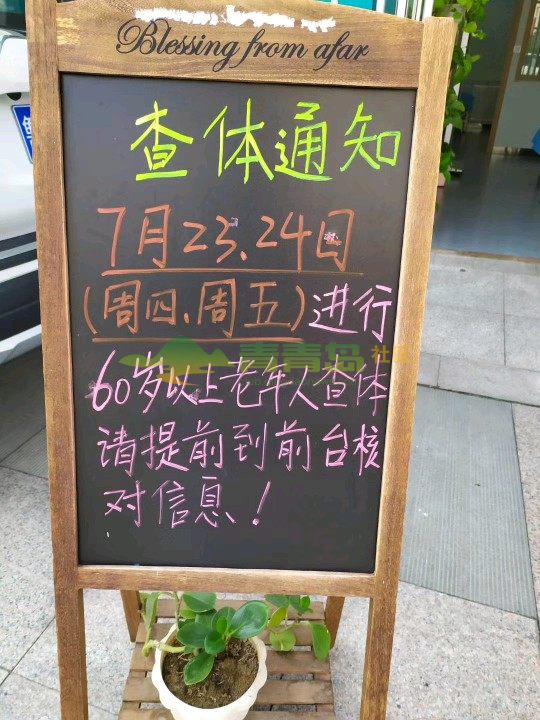 Blessing from afar
查体通知
7月23、24日
(周四、周五)进行
青青岛社区
60岁以上老年人查体
请提前到前台核
对信息！